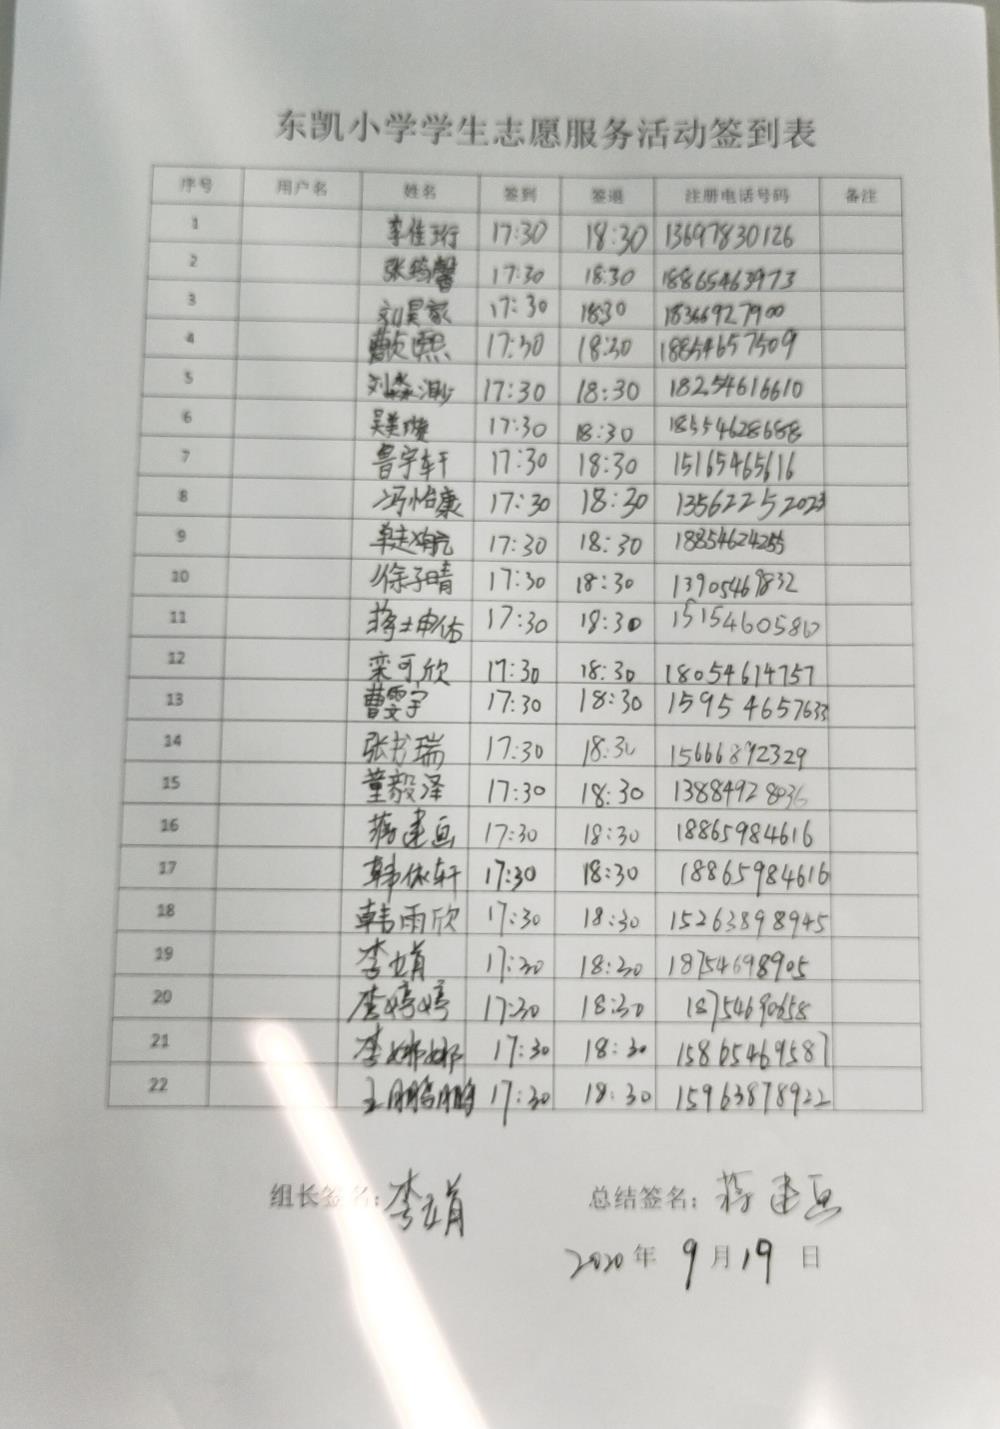 东凯小学学生志愿服务活动签到表
序号 用户名 姓名 签到 签退 注册电话号码 备注
1 李佳珩 17:30 18:30 13697830126
2 张筠馨 17:30 18:30 18865463973
3 刘昊家 17:30 18:30 18366927900
4 17:30 18:30 18854657509
5 17:30 18:30 18254616610
6 17:30 18:30 18554628688
7 鲁宇轩 17:30 18:30 15165465616
8 冯怡康 17:30 18:30 13562252023
9 17:30 18:30 18854624255
10 徐子晴 17:30 18:30 13905469832
11 蒋士申佑 17:30 18:30
12 栾可欣 17:30 18:30 18054614757
13 曹雯宇 17:30 18:30 15954657633
14 张书瑞 17:30 18:30 15666892329
15 董毅泽 17:30 18:30 13884928036
16 蒋建画 17:30 18:30 18865984616
17 韩依轩 17:30 18:30 18865984616
18 韩雨欣 17:30 18:30 15263898945
19 李娟 17:30 18:30 18754698905
20 李婷婷 17:30 18:30 18754690658
21 李娜娜 17:30 18:30 15865469587
22 王鹏鹏 17:30 18:30 15963878922
组长签名:李娟 总结签名:蒋建画
2020年9月19日